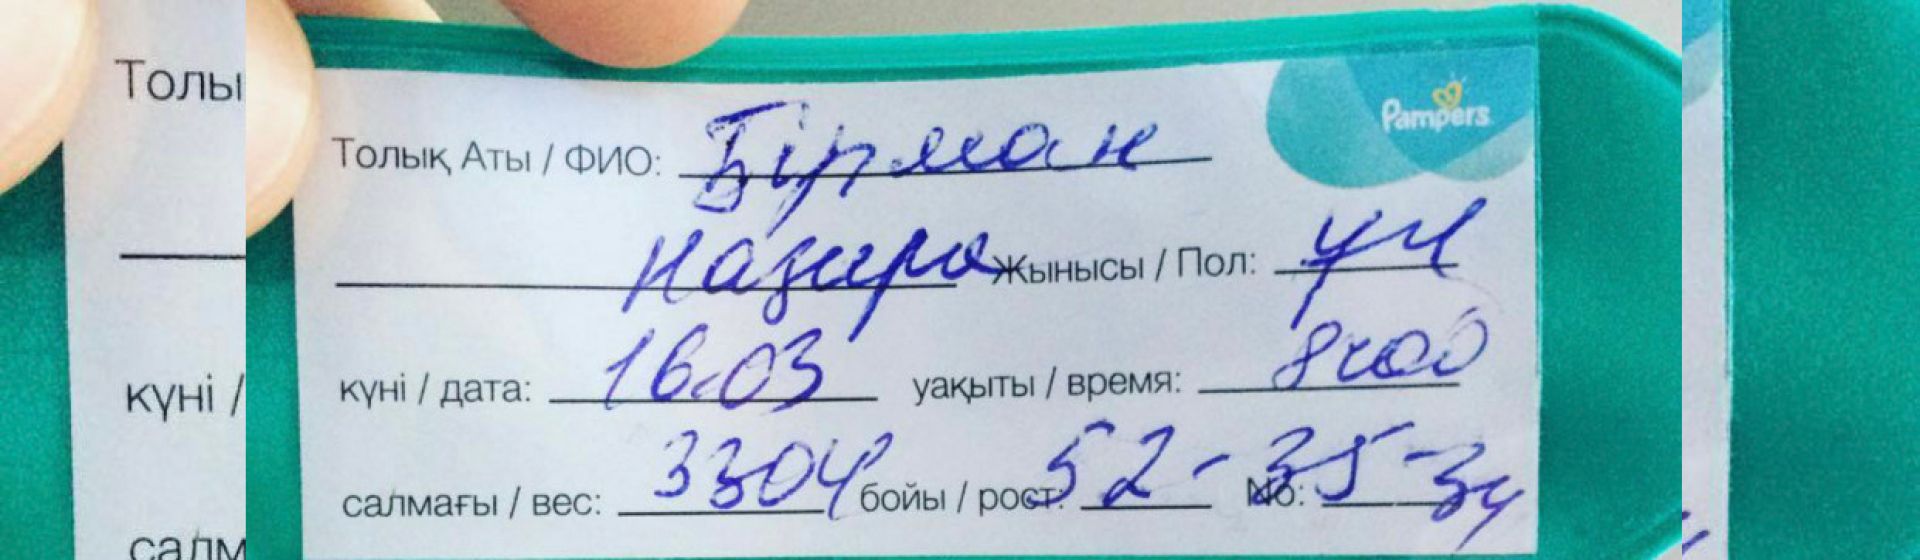 Pampers
Толық Аты / ФИО: Бірман
Назира Жынысы / Пол: ул
күні / дата: 16.03 уақыты / время: 8ч00
салмағы / вес: 3304 бойы / рост: 52-35-34 No:
Толы
күні /
салм